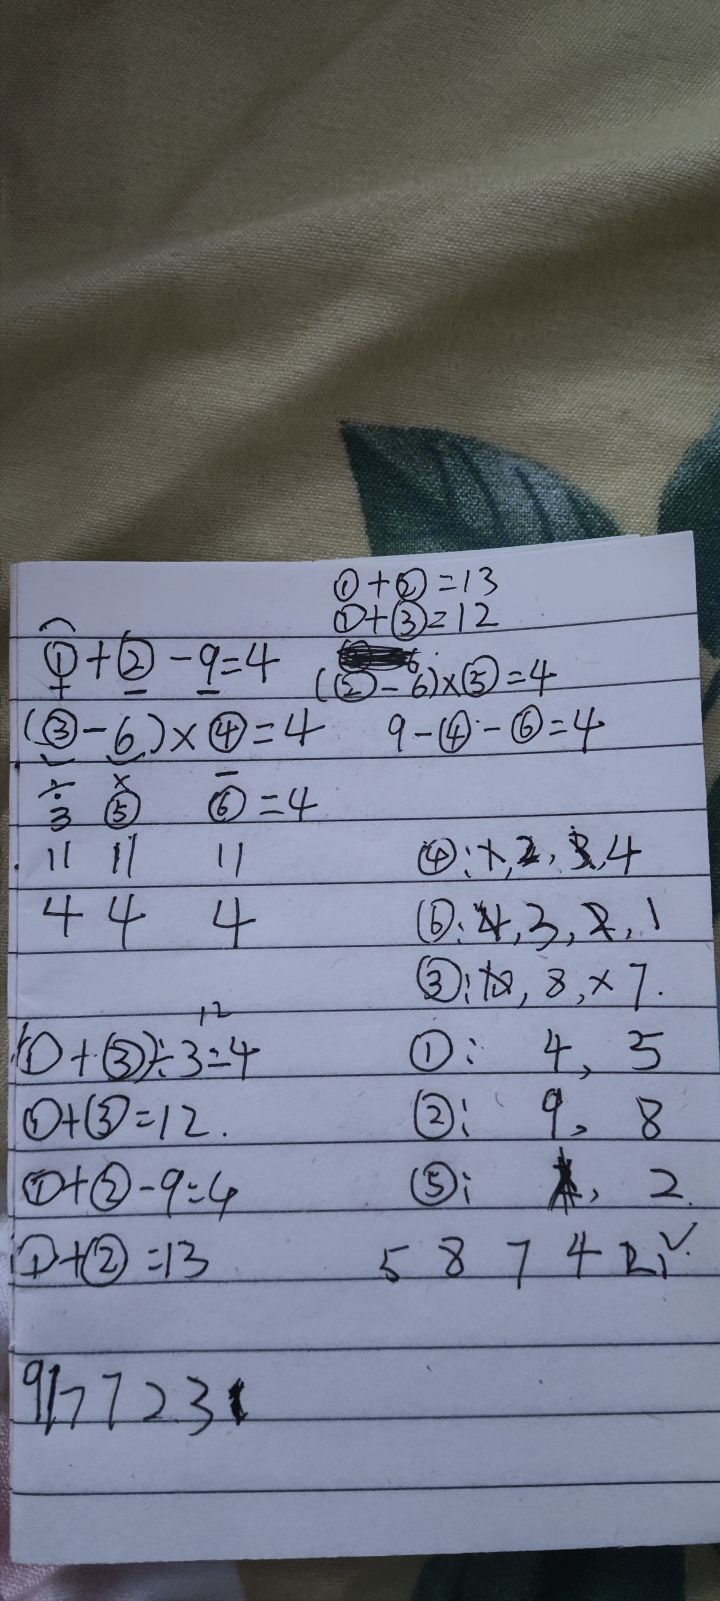 ①+②=13
①+③=12
①+②-9=4
(②-6)×⑤=4
+ - -
(③-6)×④=4
9-④-⑥=4
÷ × -
3 ⑤ ⑥=4
11 11 11
④:1,2,3,4
4 4 4
⑥:4,3,2,1
③: , 8,×7.
12
(①+③)÷3=4
①: 4, 5
①+③=12.
②: 9, 8
①+②-9=4
⑤: , 2.
①+②=13
5 8 7 4 2 1 ✓
9177231